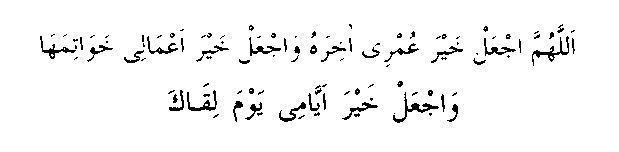 اَللَّهُمَّ اجْعَلْ خَيْرَ عُمْرِى اٰخِرَهُ وَاجْعَلْ خَيْرَ اَعْمَالِى خَوَاتِمَهَا
وَاجْعَلْ خَيْرَ اَيَّامِى يَوْمَ لِقَاكَ